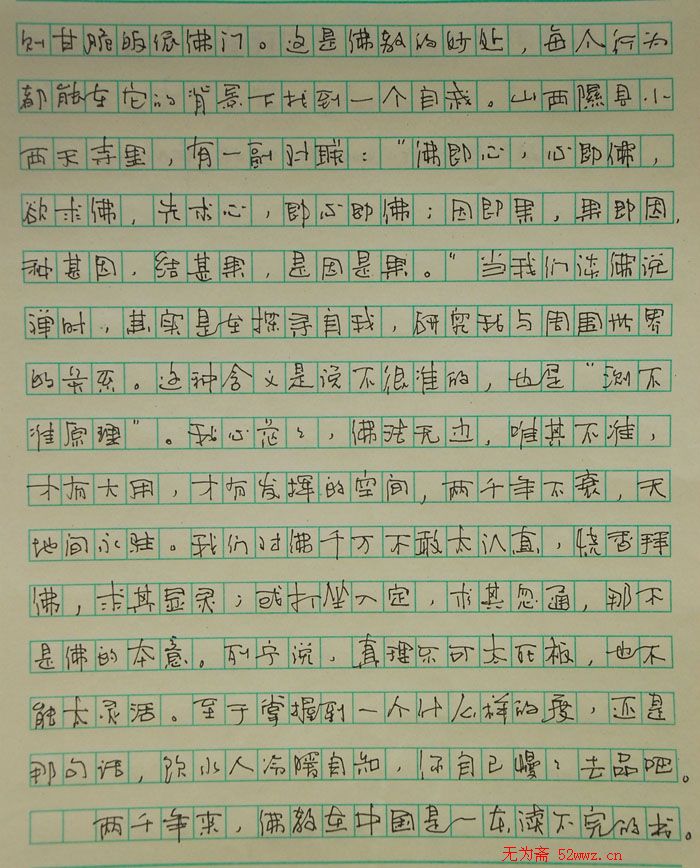 则甘脆皈依佛门。这是佛教的妙处，每个行为
都能在它的背景下找到一个自我。山西隰县小
西天寺里，有一副对联：“佛即心，心即佛，
欲求佛，先求心，即心即佛；因即果，果即因，
种甚因，结甚果，是因是果。”当我们谈佛说
禅时，其实是在探寻自我，研究我与周围世界
的关系。这种含义是说不很准的，也是“测不
准原理”。我心茫々，佛法无边，唯其不准，
才有大用，才有发挥的空间，两千年不衰，天
地间永驻。我们对佛千万不敢太认真，烧香拜
佛，求其显灵；或打坐入定，求其忽通，那不
是佛的本意。列宁说，真理不可太死板，也不
能太灵活。至于掌握到一个什么样的度，还是
那句话，饮水人冷暖自知，你自己慢々去品吧。
两千年来，佛教在中国是一本读不完的书。
无为斋 52wwz.cn